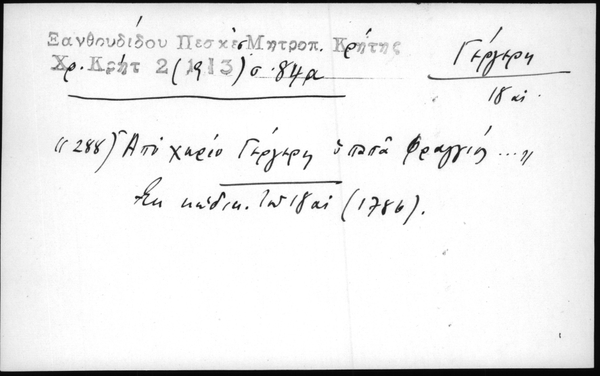 Ξανθουδίδου Πεσκέσ Μητροπ. Κρήτης
Χρ. Κρήτ 2 (1913) σ. 84α
Γέργερη
18 αι.
"288) Ἀπὸ χωριό Γέργερη ὁ παπᾶ Φραγγιός ..."
Ἐκ κώδικ. τοῦ 18 αἰ (1786).